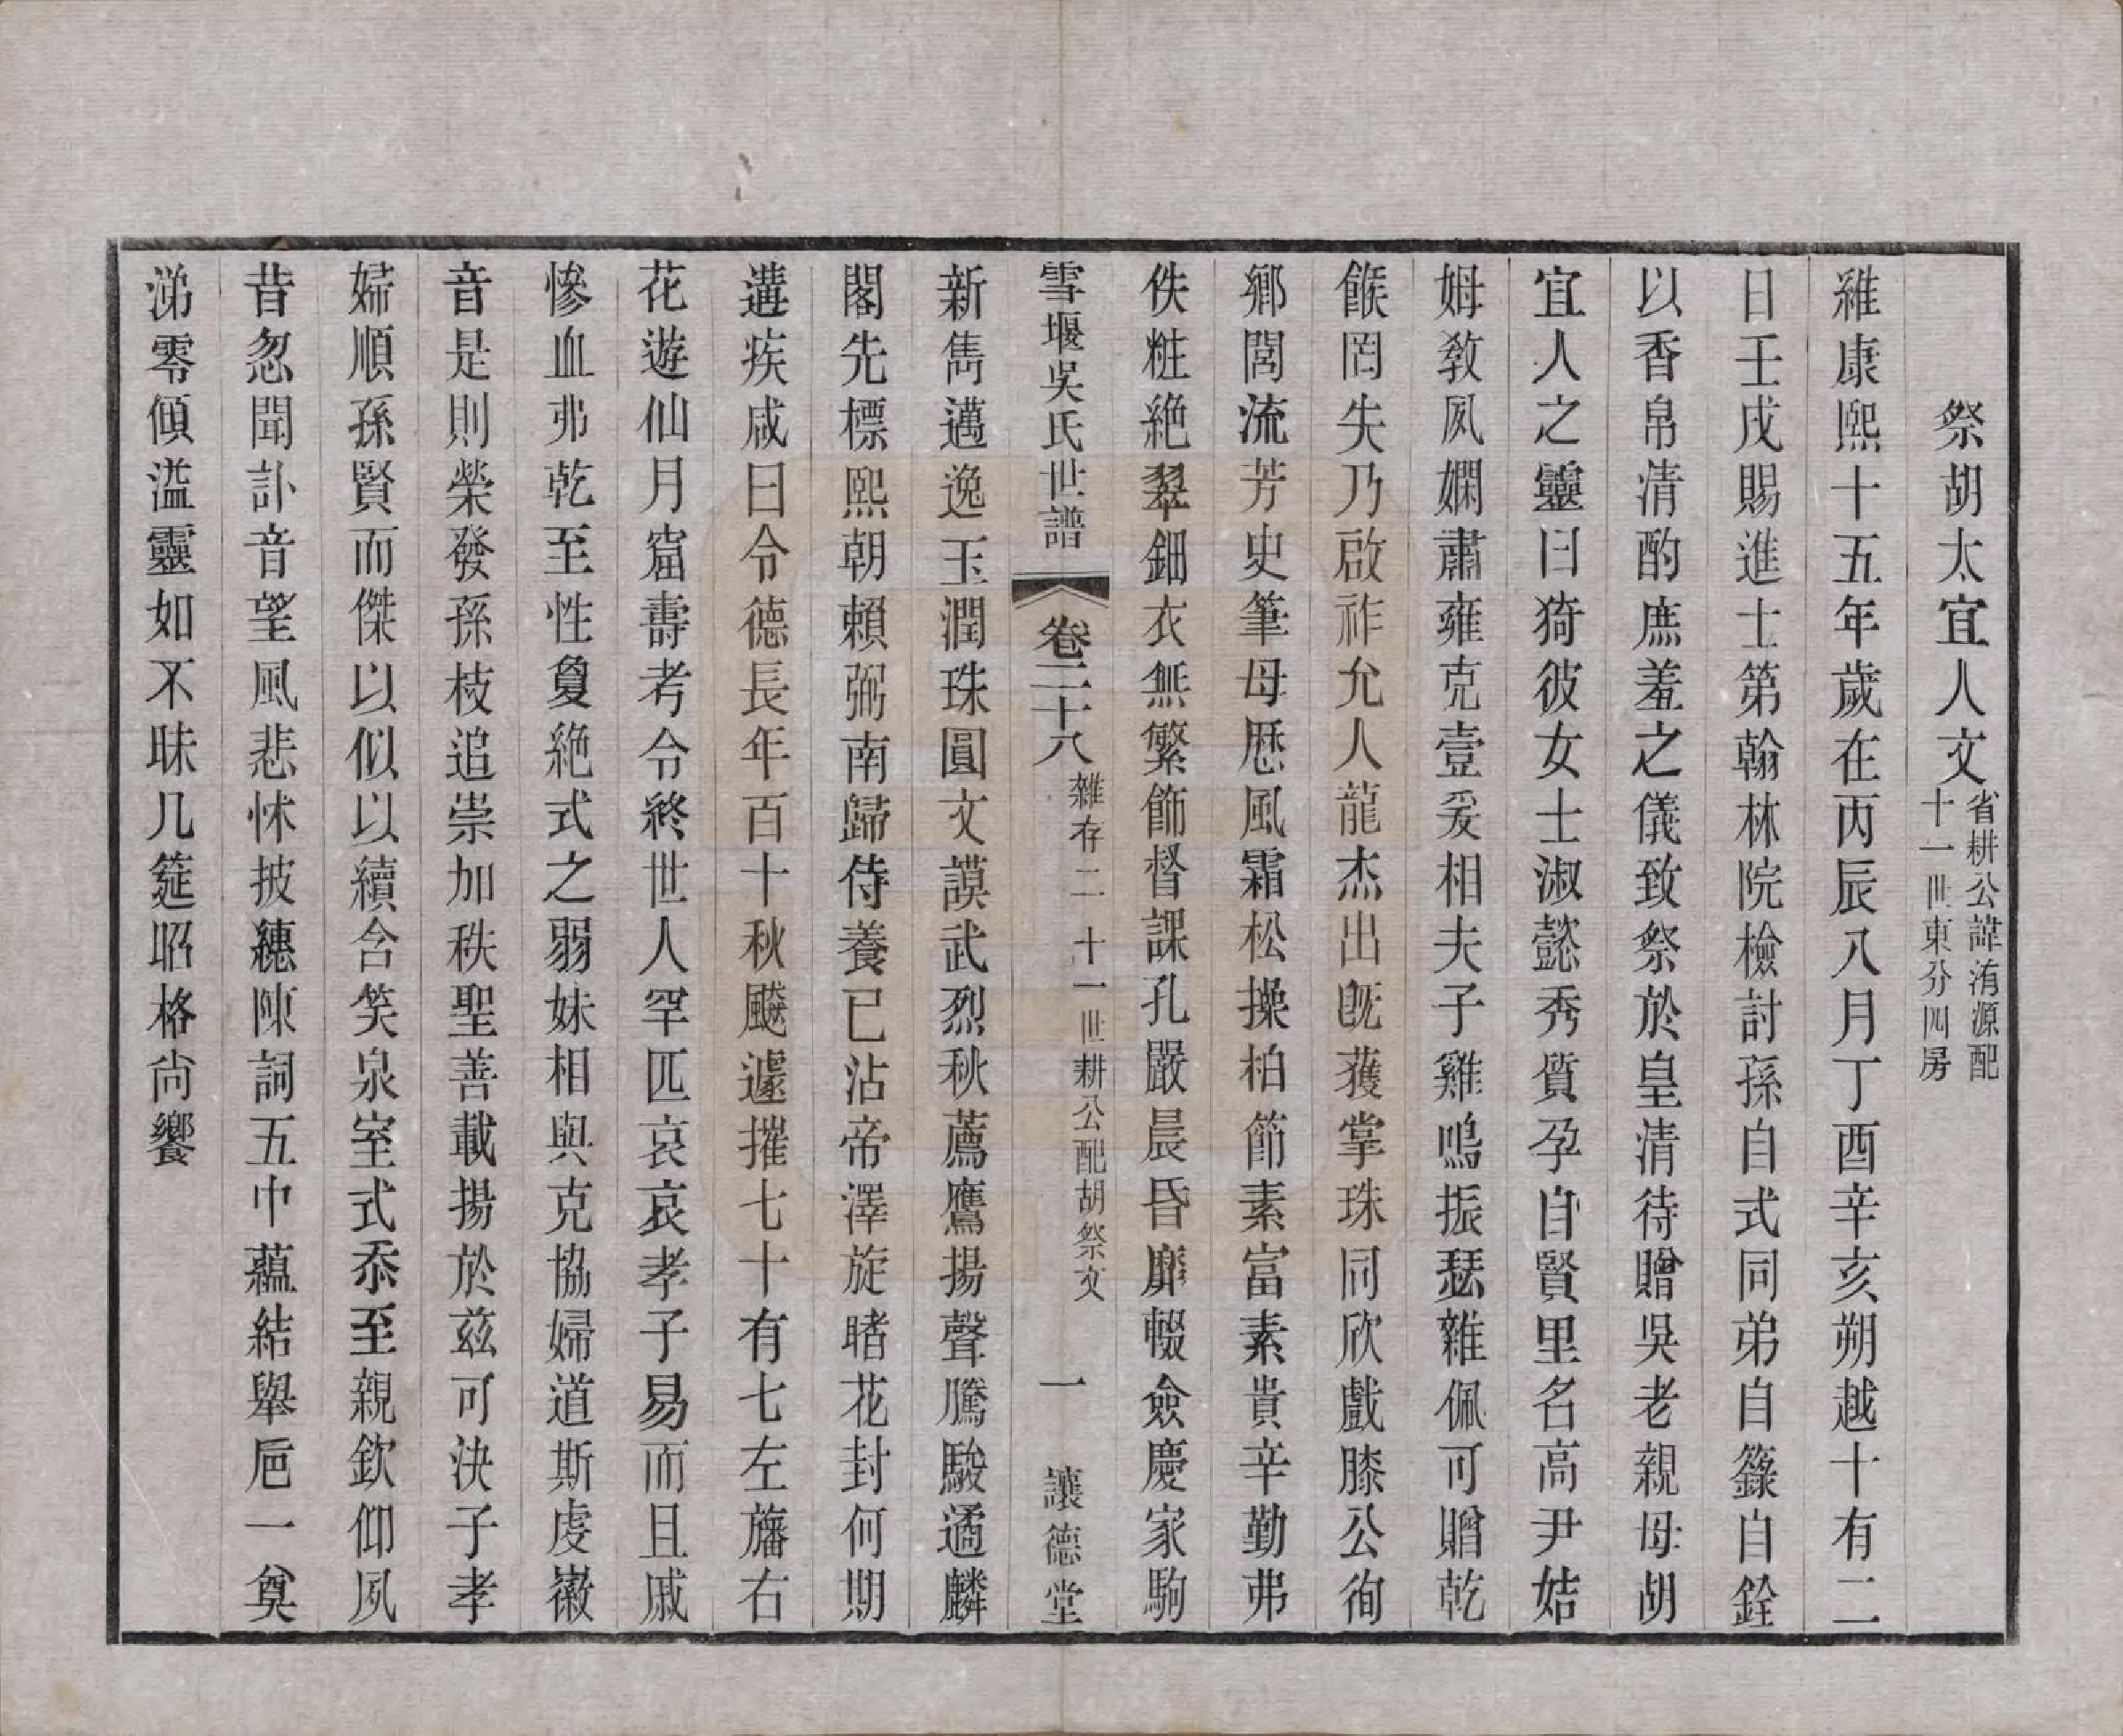 祭胡太宜人文省耕公諱洧源配十一世東分四房
維康熙十五年歲在丙辰八月丁酉辛亥朔越十有二
日壬戌賜進士第翰林院檢討孫自式同弟自籙自銓
以香帛清酌庶羞之儀致祭於皇清待贈吳老親母胡
宜人之靈曰猗彼女士淑懿秀質孕自賢里名高尹姞
姆教夙嫻肅雍克壹爰相夫子雞鳴振瑟雜佩可贈乾
餱罔失乃啟祚允人龍杰出旣獲掌珠同欣戲膝公徇
鄉閭流芳史筆母歷風霜松操柏節素富素貴辛勤弗
佚粧絶翠鈿衣無繁飾督課孔嚴晨昏靡輟僉慶家駒
雪堰吳氏世譜 卷二十八 雜存二 十一世耕公配胡祭文 一 讓德堂
新雋邁逸玉潤珠圓文謨武烈秋薦鷹揚聲騰駿遹麟
閣先標熙朝賴弼南歸侍養已沾帝澤旋睹花封何期
遘疾咸曰令德長年百十秋飈遽摧七十有七左旛右
花遊仙月窟壽考令終世人罕匹哀哀孝子易而且戚
慘血弗乾至性敻絶式之弱妹相與克協婦道斯虔徽
音是則榮發孫枝追崇加秩聖善載揚於兹可決子孝
婦順孫賢而傑以似以續含笑泉室式忝至親欽仰夙
昔忽聞訃音望風悲怵披繐陳詞五中蘊結舉巵一奠
涕零傾溢靈如不昧几筵昭格尙饗